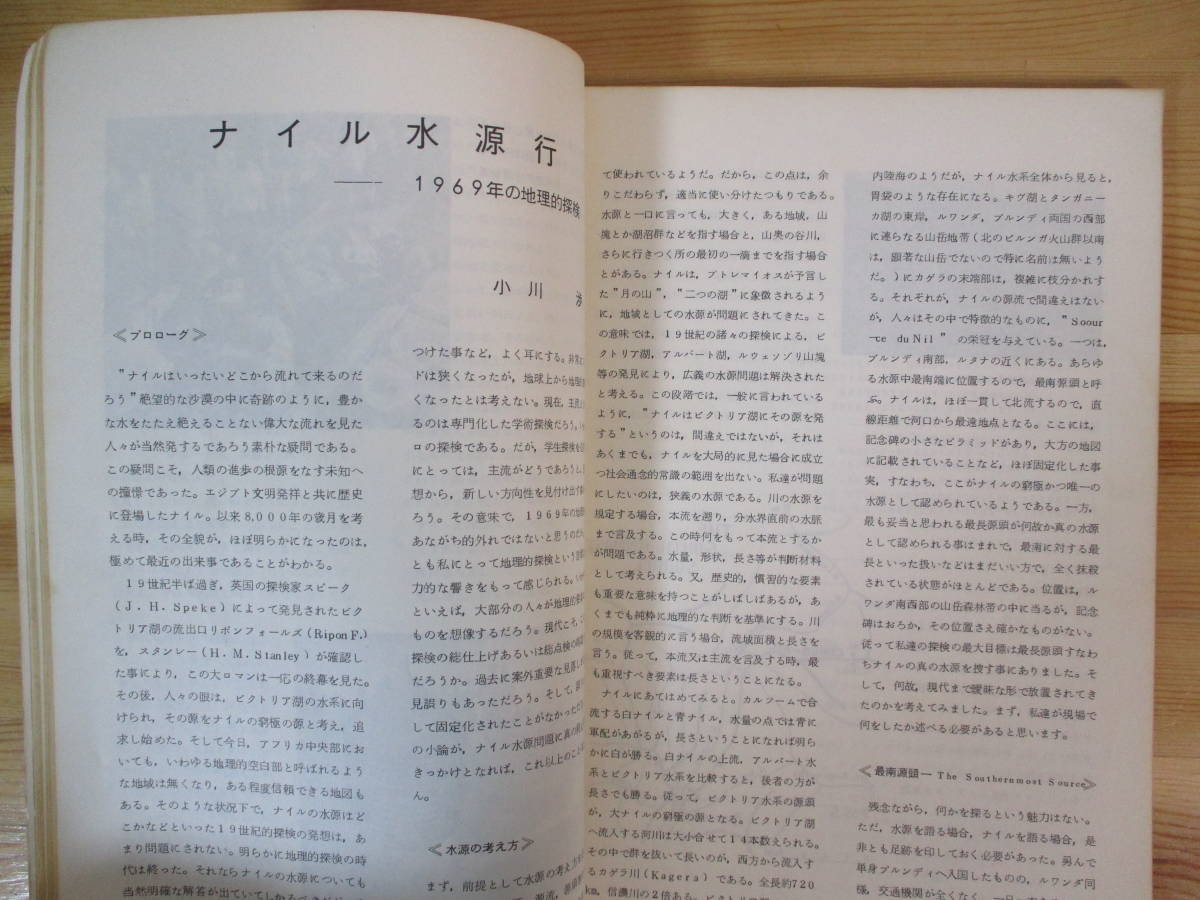 ナイル水源行
—— 1969年の地理的探検
小川
≪プロローグ≫
"ナイルはいったいどこから流れて来るのだ
ろう"絶望的な沙漠の中に奇跡のように，豊か
な水をたたえ絶えることない偉大な流れを見た
人々が当然発するであろう素朴な疑問である。
この疑問こそ，人類の進歩の根源をなす未知へ
の憧憬であった。エジプト文明発祥と共に歴史
に登場したナイル。以来8,000年の歳月を考
える時，その全貌が，ほぼ明らかになったのは，
極めて最近の出来事であることがわかる。
19世紀半ば過ぎ，英国の探検家スピーク
(J．H．Speke)によって発見されたビク
トリア湖の流出口リポンフォールズ(Ripon F.)
を，スタンレー(H．M．Stanley)が確認し
た事により，この大ロマンは一応の終幕を見た。
その後，人々の眼は，ビクトリア湖の水系に向
けられ，その源をナイルの窮極の源と考え，追
求し始めた。そして今日，アフリカ中央部にお
いても，いわゆる地理的空白部と呼ばれるよう
な地域は無くなり，ある程度信頼できる地図も
ある。そのような状況下で，ナイルの水源はど
こかなどといった19世紀的探検の発想は，あ
まり問題にされない。明らかに地理的探検の時
代は終った。それならナイルの水源についても
当然明確な解答が出ていてしかるべきだが，
つけた事など，よく耳にする。非常に
ドは狭くなったが，地球上から地理的
くなったとは考えない。現在，主流
るのは専門化した学術探検だろう。
ロの探検である。だが，学生探検を
にとっては，主流がどうであろうと，
想から，新しい方向性を見付け出す
ろう。その意味で，1969年の地理
あながち的外れではないと思うのだ
とも私にとって地理的探検という言
力的な響きをもって感じられる。
といえば，大部分の人々が地理的
ものを想像するだろう。現代こそ，
探検の総仕上げあるいは総点検の時
だろうか。過去に案外重要な見落し
見誤りもあっただろう。そして，
して固定化されたことがなかった
の小論が，ナイル水源問題に真の
きっかけとなれば，これ以上のこと
ん。
≪水源の考え方≫
まず，前提として水源の考え方
て使われているようだ。だから，この点は，余
りこだわらず，適当に使い分けたつもりである。
水源と一口に言っても，大きく，ある地域，山
塊とか湖沼群などを指す場合と，山奥の谷川，
さらに行きつく所の最初の一滴までを指す場合
とがある。ナイルは，プトレマイオスが予言し
た"月の山"，"二つの湖"に象徴されるよう
に，地域としての水源が問題にされてきた。こ
の意味では，19世紀の諸々の探検による，ビ
クトリア湖，アルバート湖，ルウェンゾリ山塊
等の発見により，広義の水源問題は解決された
と考える。この段階では，一般に言われている
ように，"ナイルはビクトリア湖にその源を発
する"というのは，間違えではないが，それは
あくまでも，ナイルを大局的に見た場合に成立
つ社会通念的常識の範囲を出ない。私達が問題
にしたいのは，狭義の水源である。川の水源を
規定する場合，本流を遡り，分水界直前の水脈
まで言及する。この時何をもって本流とするか
が問題である。水量，形状，長さ等が判断材料
として考えられる。又，歴史的，慣習的な要素
も重要な意味を持つことがしばしばあるが，あ
くまでも純粋に地理的な判断を基準にする。川
の規模を客観的に言う場合，流域面積と長さを
言う。従って，本流又は主流を言及する時，最
も重視すべき要素は長さということになる。
ナイルにあてはめてみると。カルツームで合
流する白ナイルと青ナイル，水量の点では青に
軍配があがるが，長さということになれば明ら
かに白が勝る。白ナイルの上流，アルバート水
系とビクトリア水系を比較すると，後者の方が
長さでも勝る。従って，ビクトリア水系の源頭
が，大ナイルの窮極の源となる。ビクトリア湖
へ流入する河川は大小合せて14本数えられる。
その中で群を抜いて長いのが，西方から流入す
るカゲラ川(Kagera)である。全長約720
km，信濃川の2倍ある。
内陸海のようだが，ナイル水系全体から見ると，
胃袋のような存在になる。キヴ湖とタンガニー
カ湖の東岸，ルワンダ，ブルンディ両国の西部
に連らなる山岳地帯(北のビルンガ火山群以南
は，顕著な山岳でないので特に名前は無いよう
だ。)にカゲラの末端部は，複雑に枝分かれす
る。それぞれが，ナイルの源流で間違えはない
が，人々はその中で特徴的なものに，"Soour
-ce du Nil"の栄冠を与えている。一つは，
ブルンディ南部，ルタナの近くにある。あらゆ
る水源中最南端に位置するので，最南源頭と呼
ぶ。ナイルは，ほぼ一貫して北流するので，直
線距離で河口から最遠地点となる。ここには，
記念碑の小さなピラミッドがあり，大方の地図
に記載されていることなど，ほぼ固定化した事
実，すなわち，ここがナイルの窮極かつ唯一の
水源として認められているようである。一方，
最も妥当と思われる最長源頭が何故か真の水源
として認められる事はまれで，最南に対する最
長といった扱いなどはまだいい方で，全く抹殺
されている状態がほとんどである。位置は，ル
ワンダ南西部の山岳森林帯の中に当るが，記念
碑はおろか，その位置さえ確かなものがない。
従って私達の探検の最大目標は最長源頭すなわ
ちナイルの真の水源を捜す事にありました。そ
して，何故，現代まで曖昧な形で放置されてき
たのかを考えてみました。まず，私達が現場で
何をしたか述べる必要があると思います。
≪最南源頭— The Southernmost Source≫
残念ながら，何かを探るという魅力はない。
ただ，水源を語る場合，ナイルを語る場合，是
非とも足跡を印しておく必要があった。勇んで
単身ブルンディへ入国したものの，ルワンダ同
様，交通機関が全くなく，